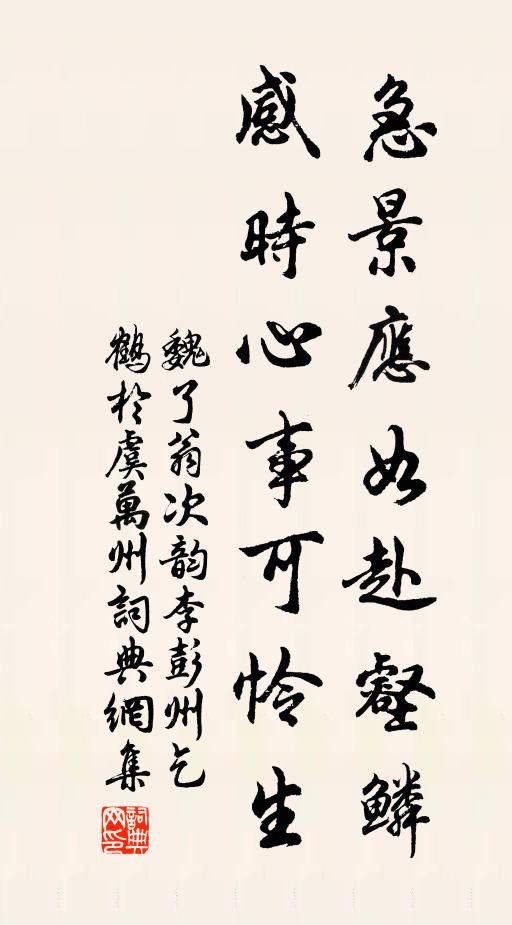 急景應如赴壑鱗
感時心事可憐生
魏了翁次韵李彭州乞
鶴於虞萬州詞典網集
詞典网印